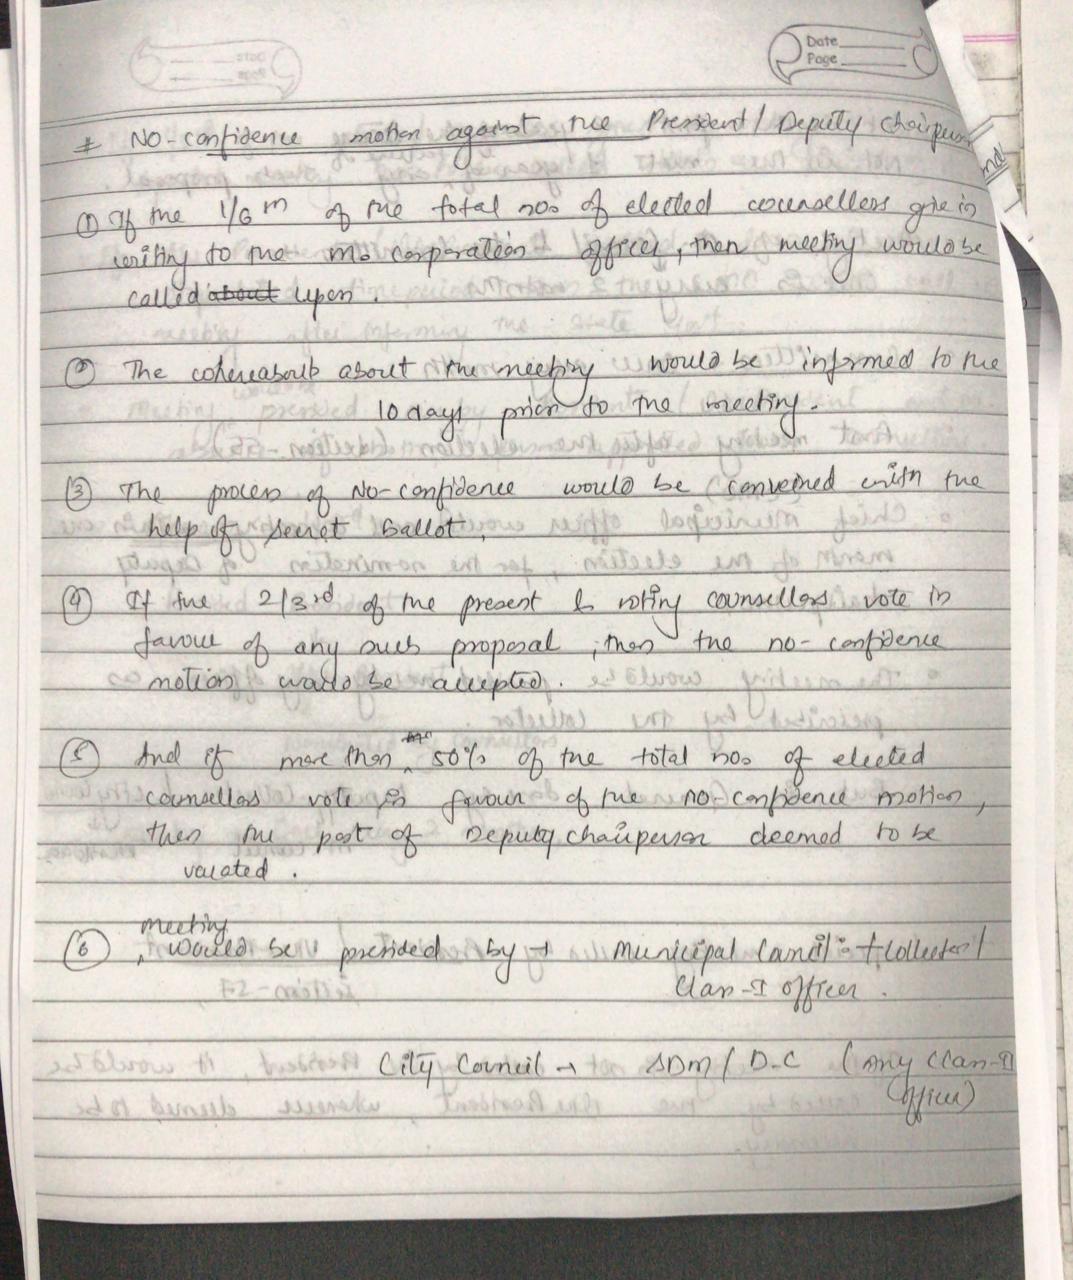 Date
Page
# No-confidence motion against the President/ Deputy chairperson
① If the 1/6th of the total nos of elected counsellors give in
writing to the corporation officer, then meeting would be
called about upon.
② The whereabouts about the meeting would be informed to the
10 days prior to the meeting.
③ The process of No-confidence would be convened with the
help of secret ballot.
④ If the 2/3rd of the present & voting counsellors vote in
favour of any such proposal, then the no-confidence
motion would be accepted.
⑤ And if more than 50% of the total nos of elected
counsellors vote in favour of the no-confidence motion,
then the post of Deputy chairperson deemed to be
vacated.
meeting
⑥ would be presided by → Municipal Council → Collector/
Class-I officer.
City Council → SDM / D.C (Any Class-I
officer)